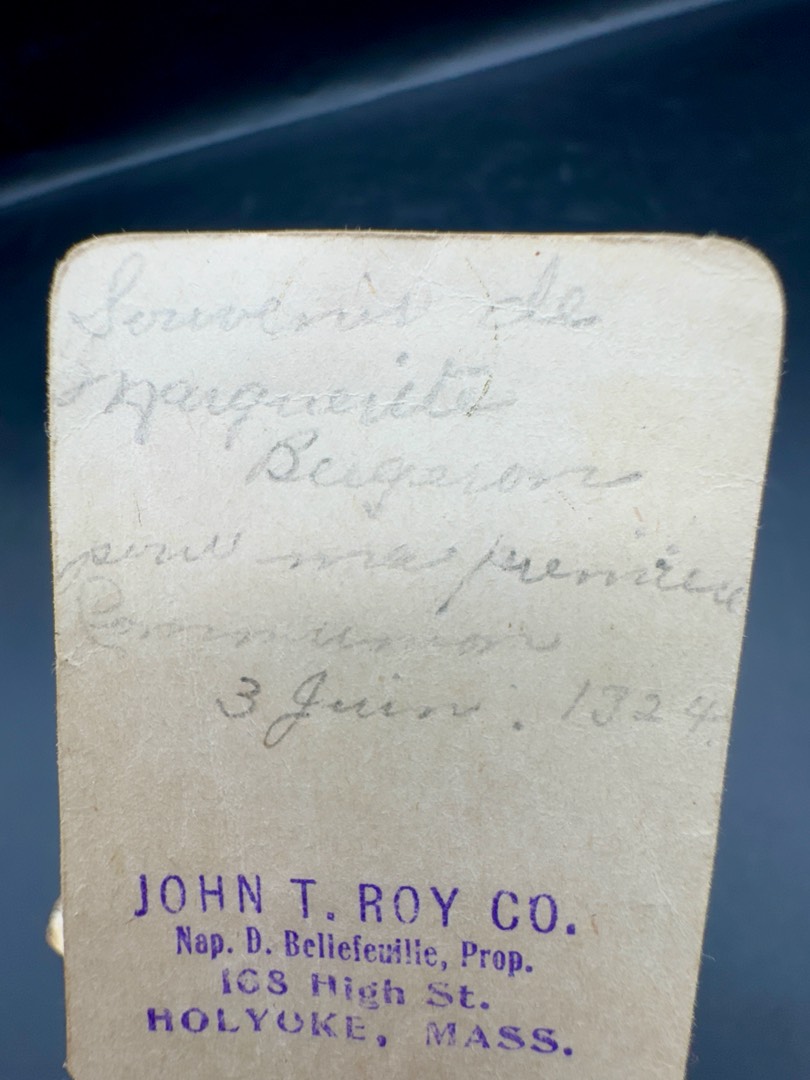 Souvenir de
Marguerite
Bergeron
pour ma première
Communion
3 Juin . 1924
JOHN T. ROY CO.
Nap. D. Bellefeuille, Prop.
168 High St.
HOLYOKE, MASS.